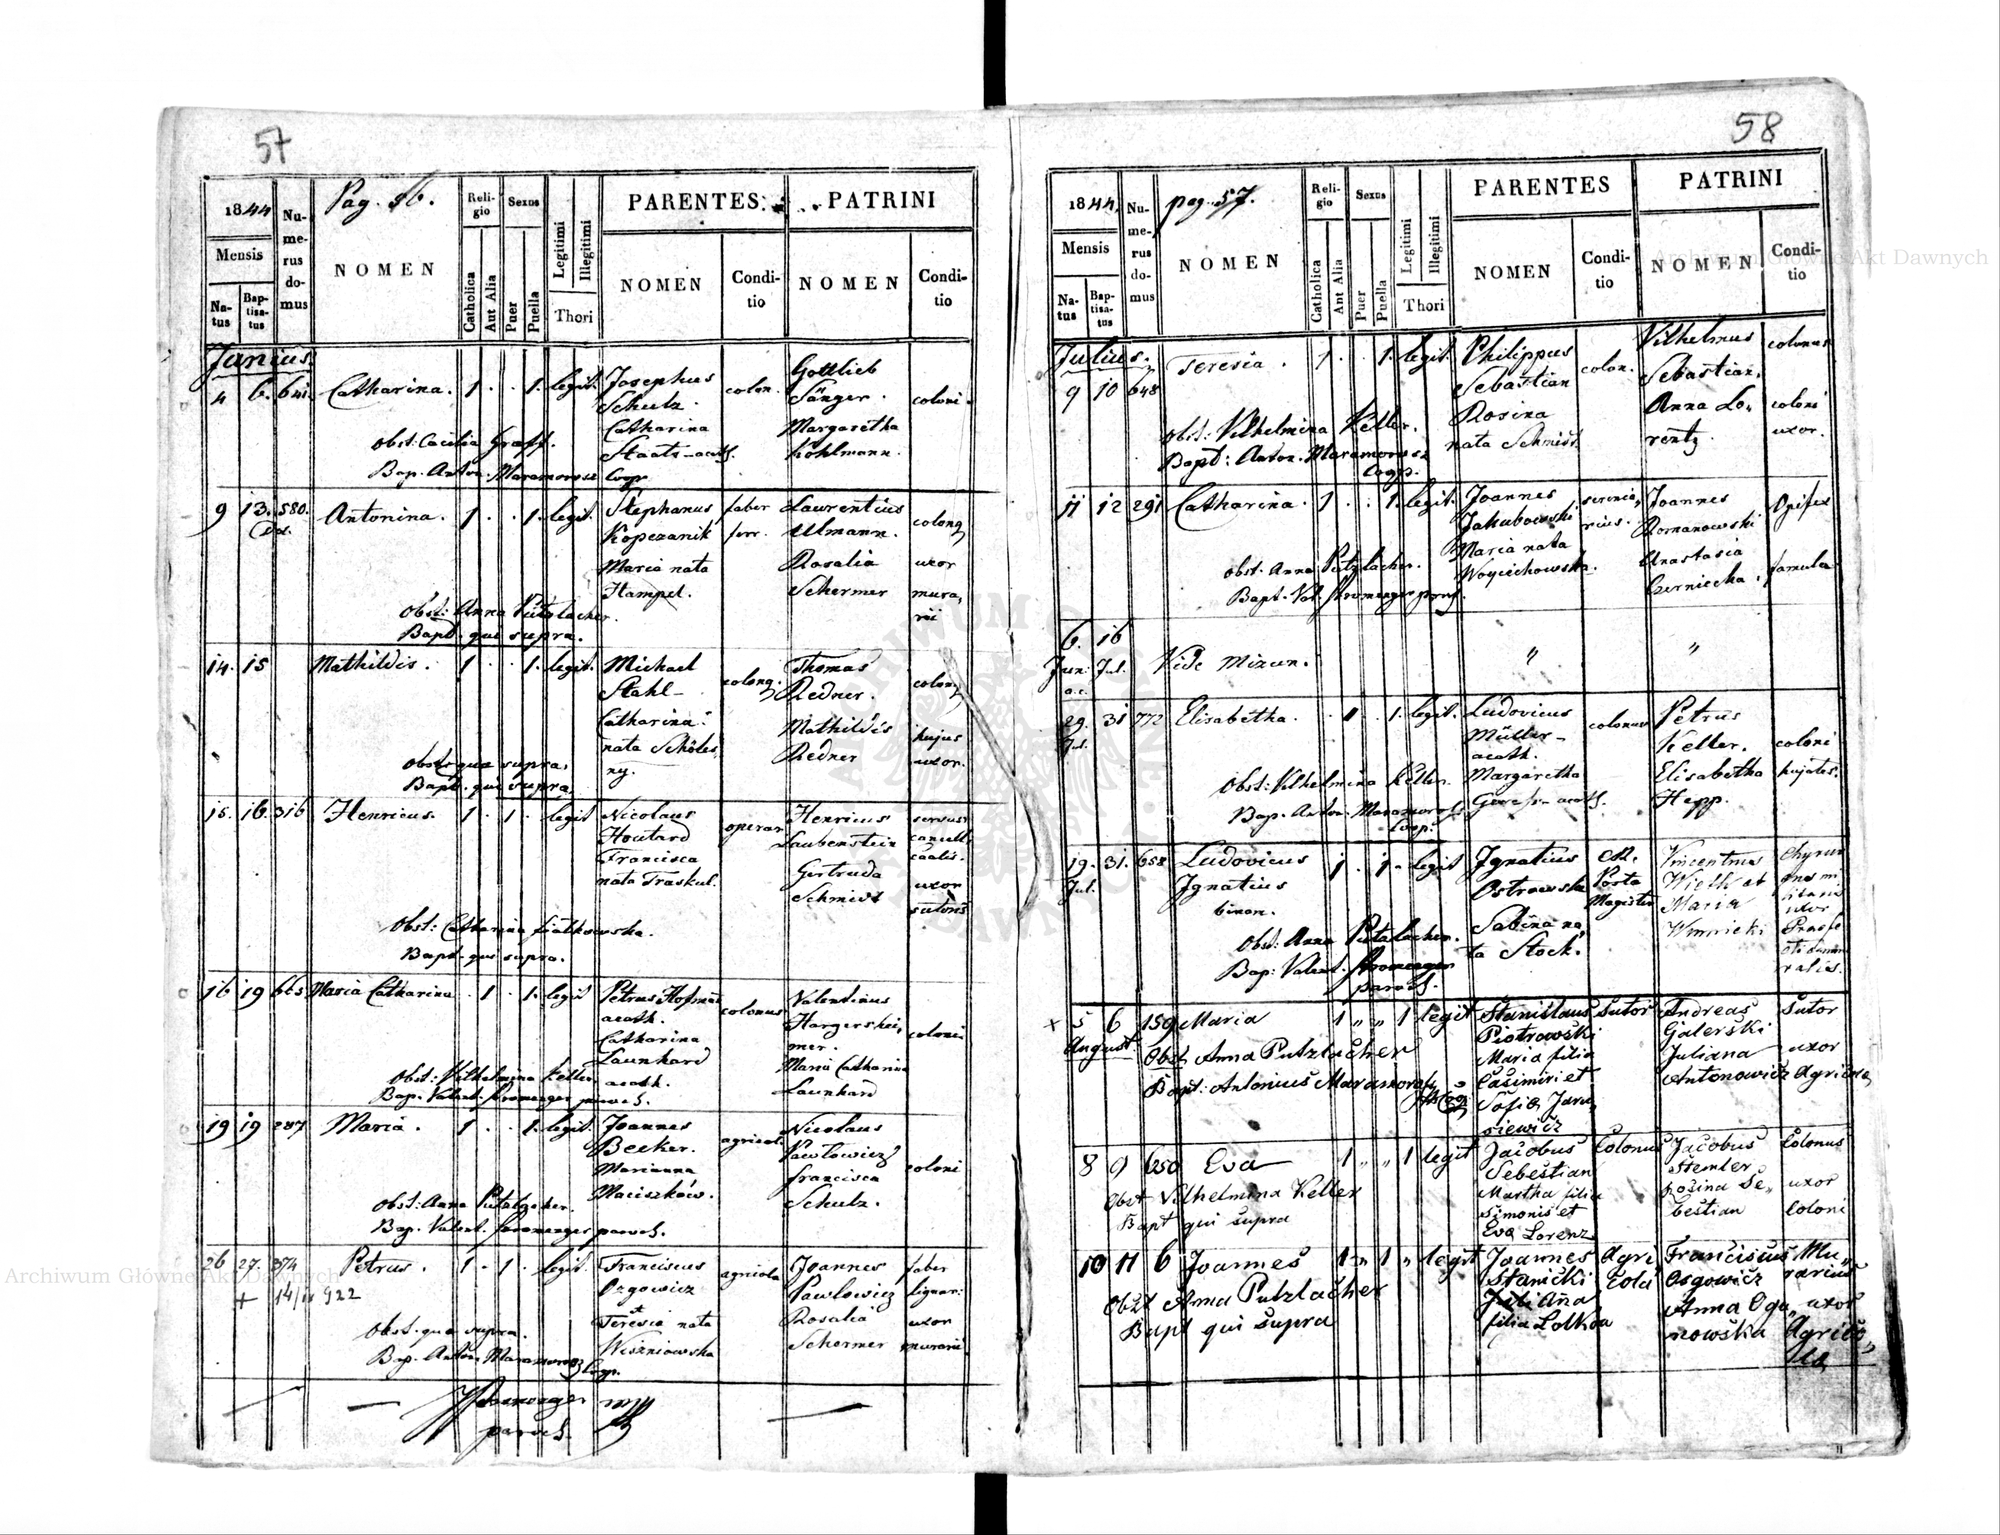 57
1844
Pag. 56.
Numerus domus
Religio
Sexus
Legitimi
Illegitimi
PARENTES
PATRINI
Mensis
NOMEN
Catholica
Aut Alia
Puer
Puella
Thori
NOMEN
Conditio
NOMEN
Conditio
Natus
Baptisatus
Junius.
4 6. 641. Catharina. 1 . . 1. legit. Josephus colon. Gottlieb coloni.
Schulz. Sänger.
Catharina Margaretha
Staats-acath. Kohlmann.
Obst: Cacilia Graff.
Bap. Anton. Maramorosz Coop.
9 13. 580. Antonina. 1 . . 1. legit. Stephanus faber Laurentius colonq
Kopczanik ferr. Ulmann.
Maria nata Rosalia uxor
Hampel. Schermer mura,
rii
Obst: Anna Putzlacher.
Bapt. qui supra.
14. 15 Mathildis. 1 . . 1. legit. Michael colonq. Thomas colonq
Stahl- Redner.
Catharina Mathildis hujus
nata Redner uxor.
ny.
Obst. qua supra.
Bapt. qui supra.
15. 16. 316 Henricus. 1 . 1 . legit Nicolaus operar Henricus servus
Houtard Laubenstein
Francisca Gertruda uxor
nata Traskul. Schmidt sutoris
Obst: Catharina fiatkowska.
Bapt. qui supra.
16 19 665 Maria Catharina . 1 . 1. legit Petrus Hofman colonus Valentinus coloni
acath. Hargershei,
Catharina mer.
Launhard Maria Catharina
acath. Launhard
Obst: Vilhelmina Keller
Bap. Valent. Kromerger paroch.
19 19 287 Maria. 1 . . 1. legit. Joannes agricol. Nicolaus coloni
Becker. Pawlowicz
Marianna francisca
Maciszków. Schulz.
Obst: Anna Putzlacher.
Bap. Valent. Kromerger paroch.
26 27. 374 Petrus. 1 . 1 . legit. Franciscus agricola Joannes faber
+ 14/ 922 Ozgowicz Pawlowicz lignar:
Teresia nata Rosalia uxor
Wiszniowska Schermer murarii.
Obst. qua supra.
Bap. Anton Maramorosz Coop.
paroch.
58
1844.
pag. 57.
Numerus domus
Religio
Sexus
Legitimi
Illegitimi
PARENTES
PATRINI
Mensis
NOMEN
Catholica
Aut Alia
Puer
Puella
Thori
NOMEN
Conditio
NOMEN
Conditio
Natus
Baptisatus
Julius.
9 10 648 Teresia. 1 . . 1. legit. Philippus colon. Vilhelmus colonus
Sebastian Sebastian.
Rosina Anna Lo, coloni
nata Schmidt. rentz. uxor.
Obst: Vilhelmina Keller.
Bapt: Anton. Maramorosz Coop.
11 12 291 Catharina. 1 . . 1. legit. Joannes Joannes Opifex
Jakubowski rius. Romanowski
Maria nata Anastasia
Woyciechowska. Czerniecka. famula
obst. Anna Putzlacher.
Bapt. Val. Kromerger
6. 16
Jun: Jul. Vide " "
a.c.
29. 31 772 Elisabetha. . 1 . 1. legit. Ludovicus colonus Petrus
Jul. Müller- Keller. coloni
acath. Elisabetha hujates.
Margaretha Hepp.
acath.
Obst: Vilhelmina Keller.
Bap. Anton. Maramorosz Coop.
19. 31. 658 Ludovicus 1 . 1. legit Ignatius Vincentius
Jul. Ignatius Ostrowska Posta Wieth et
binon. Magister Maria uxor
Sabina na, Winnicki
ta Stock.
Obst: Anna Putzlacher.
Bap: Valent. Kromerger paroch.
+ 5 6 159 Maria 1 " " 1 legit Stanislaus Sutor Andreas Sutor
August Piotrowski Galerski
Obst Anna Putzlacher Maria filia Juliana uxor
Bapt: Antonius Maramorosz Casimiri et Antonowicz Agricola
Sofia Jaru,
siewicz
8 9 650 Eva 1 " " 1 legit Jacobus Colonus Jacobus Colonus
Sebestian Stemler
Obst Vilhelmina Keller Martha filia Rosina Se, uxor
Bapt qui supra Simonis et bestian Coloni
Eva Lorenz
10 11 6 Joannes 1 " 1 " legit Joannes Agri, Franciscus Mu,
Stanicki cola Osgowicz rarius
Obst Anna Putzlacher Juliana Anna Oga, uxor
Bapt qui supra filia Lolkva nowska Agrico,
la
Archiwum Główne Akt Dawnych
Archiwum Główne Akt Dawnych